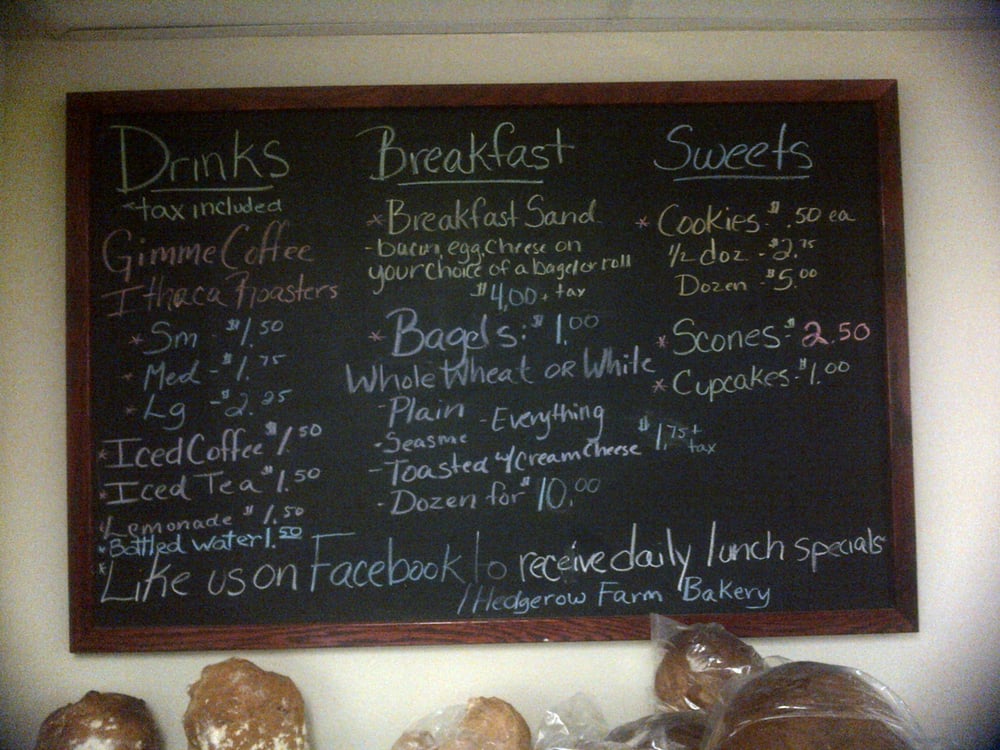 Drinks
*tax included
Gimme Coffee
Ithaca Roasters
*Sm - $1.50
- Med - $1.75
* Lg - $2.25
*Iced Coffee $1.50
*Iced Tea $1.50
*Lemonade $1.50
*Bottled Water 1.50
Breakfast
*Breakfast Sand
- bacon, egg, cheese on
your choice of a bagel or roll
$4.00 + tax
*Bagels: $1.00
Whole Wheat or White
- Plain - Everything
- Seasme
- Toasted w/ Cream Cheese $1.75 + tax
- Dozen for $10.00
Sweets
* Cookies - $.50 ea
1/2 doz - $2.75
Dozen - $5.00
*Scones - $2.50
*Cupcakes - $1.00
*Like us on Facebook to receive daily lunch specials
/Hedgerow Farm Bakery